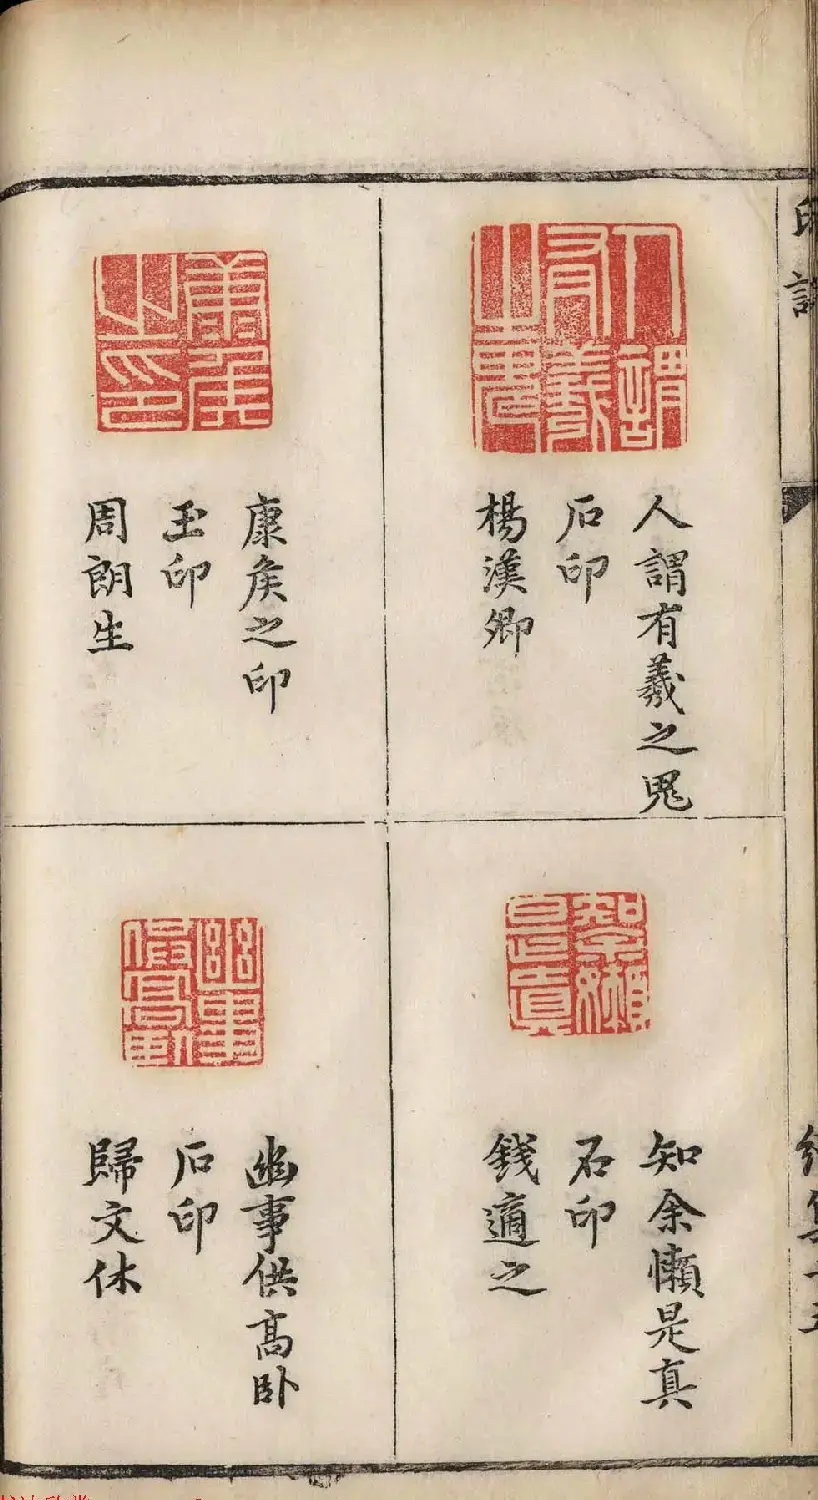 人謂有羲之鬼
石印
楊漢卿
康矦之印
玉印
周朗生
知余懶是真
石印
錢適之
幽事供高臥
石印
歸文休